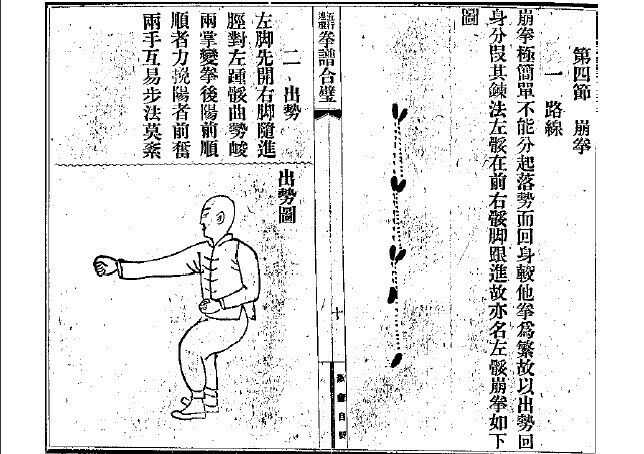 第四節 崩拳
一 路線
崩拳極簡單不能分起落勢而回身較他拳爲繁故以出勢回
身分段其鍊法左骽在前右骽脚跟進故亦名左骽崩拳如下
圖
拳譜合璧
十
二 出勢
左脚先開右脚隨進
脛對左踵骽曲勢峻
兩掌變拳後陽前順
順者力挽陽者前奮
兩手互易步法莫紊
出勢圖